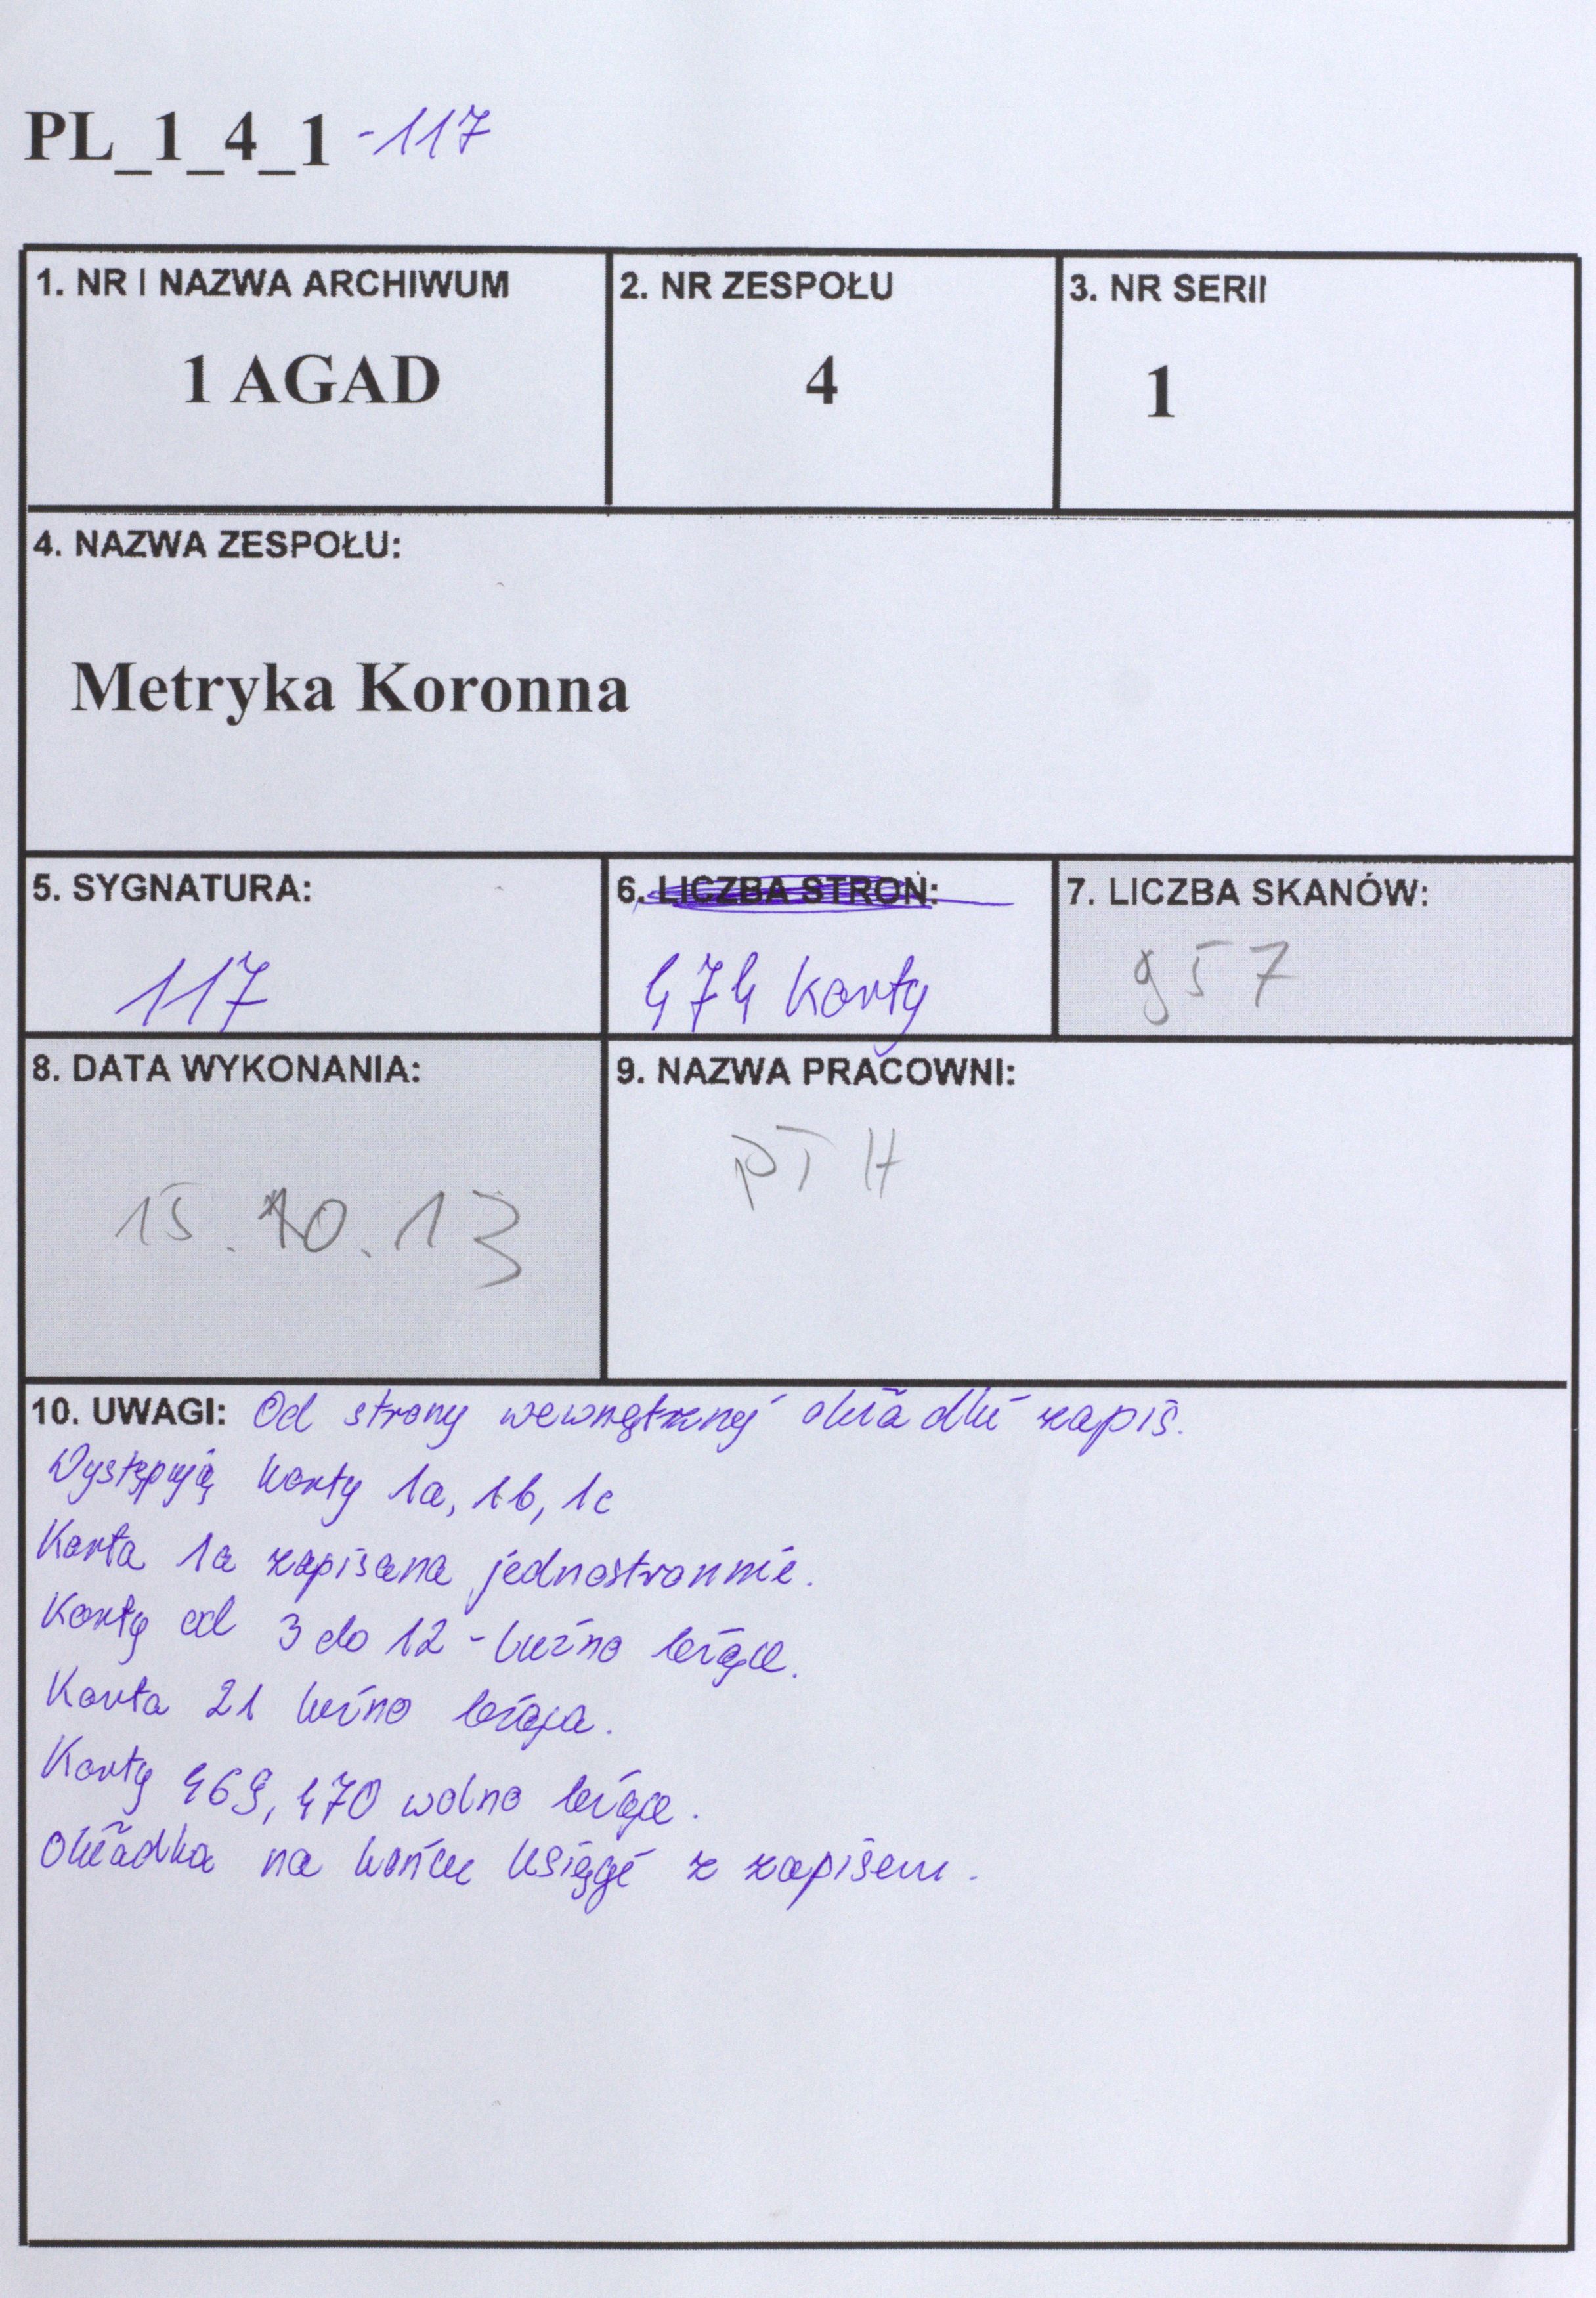 PL_1_4_1 -117
1. NR I NAZWA ARCHIWUM
1 AGAD
2. NR ZESPOŁU
4
3. NR SERII
1
4. NAZWA ZESPOŁU:
Metryka Koronna
5. SYGNATURA:
117
6. LICZBA STRON:
474 karty
7. LICZBA SKANÓW:
957
8. DATA WYKONANIA:
15.10.13
9. NAZWA PRACOWNI:
PTH
10. UWAGI: Od strony wewnętrznej okładki zapis.
Występują karty 1a, 1b, 1c
Karta 1a zapisana jednostronnie.
Karty od 3 do 12 - luźno leżące.
Karta 21 luźno leżąca.
Karty 469, 470 wolno leżące.
Okładka na końcu księgi z zapisem.